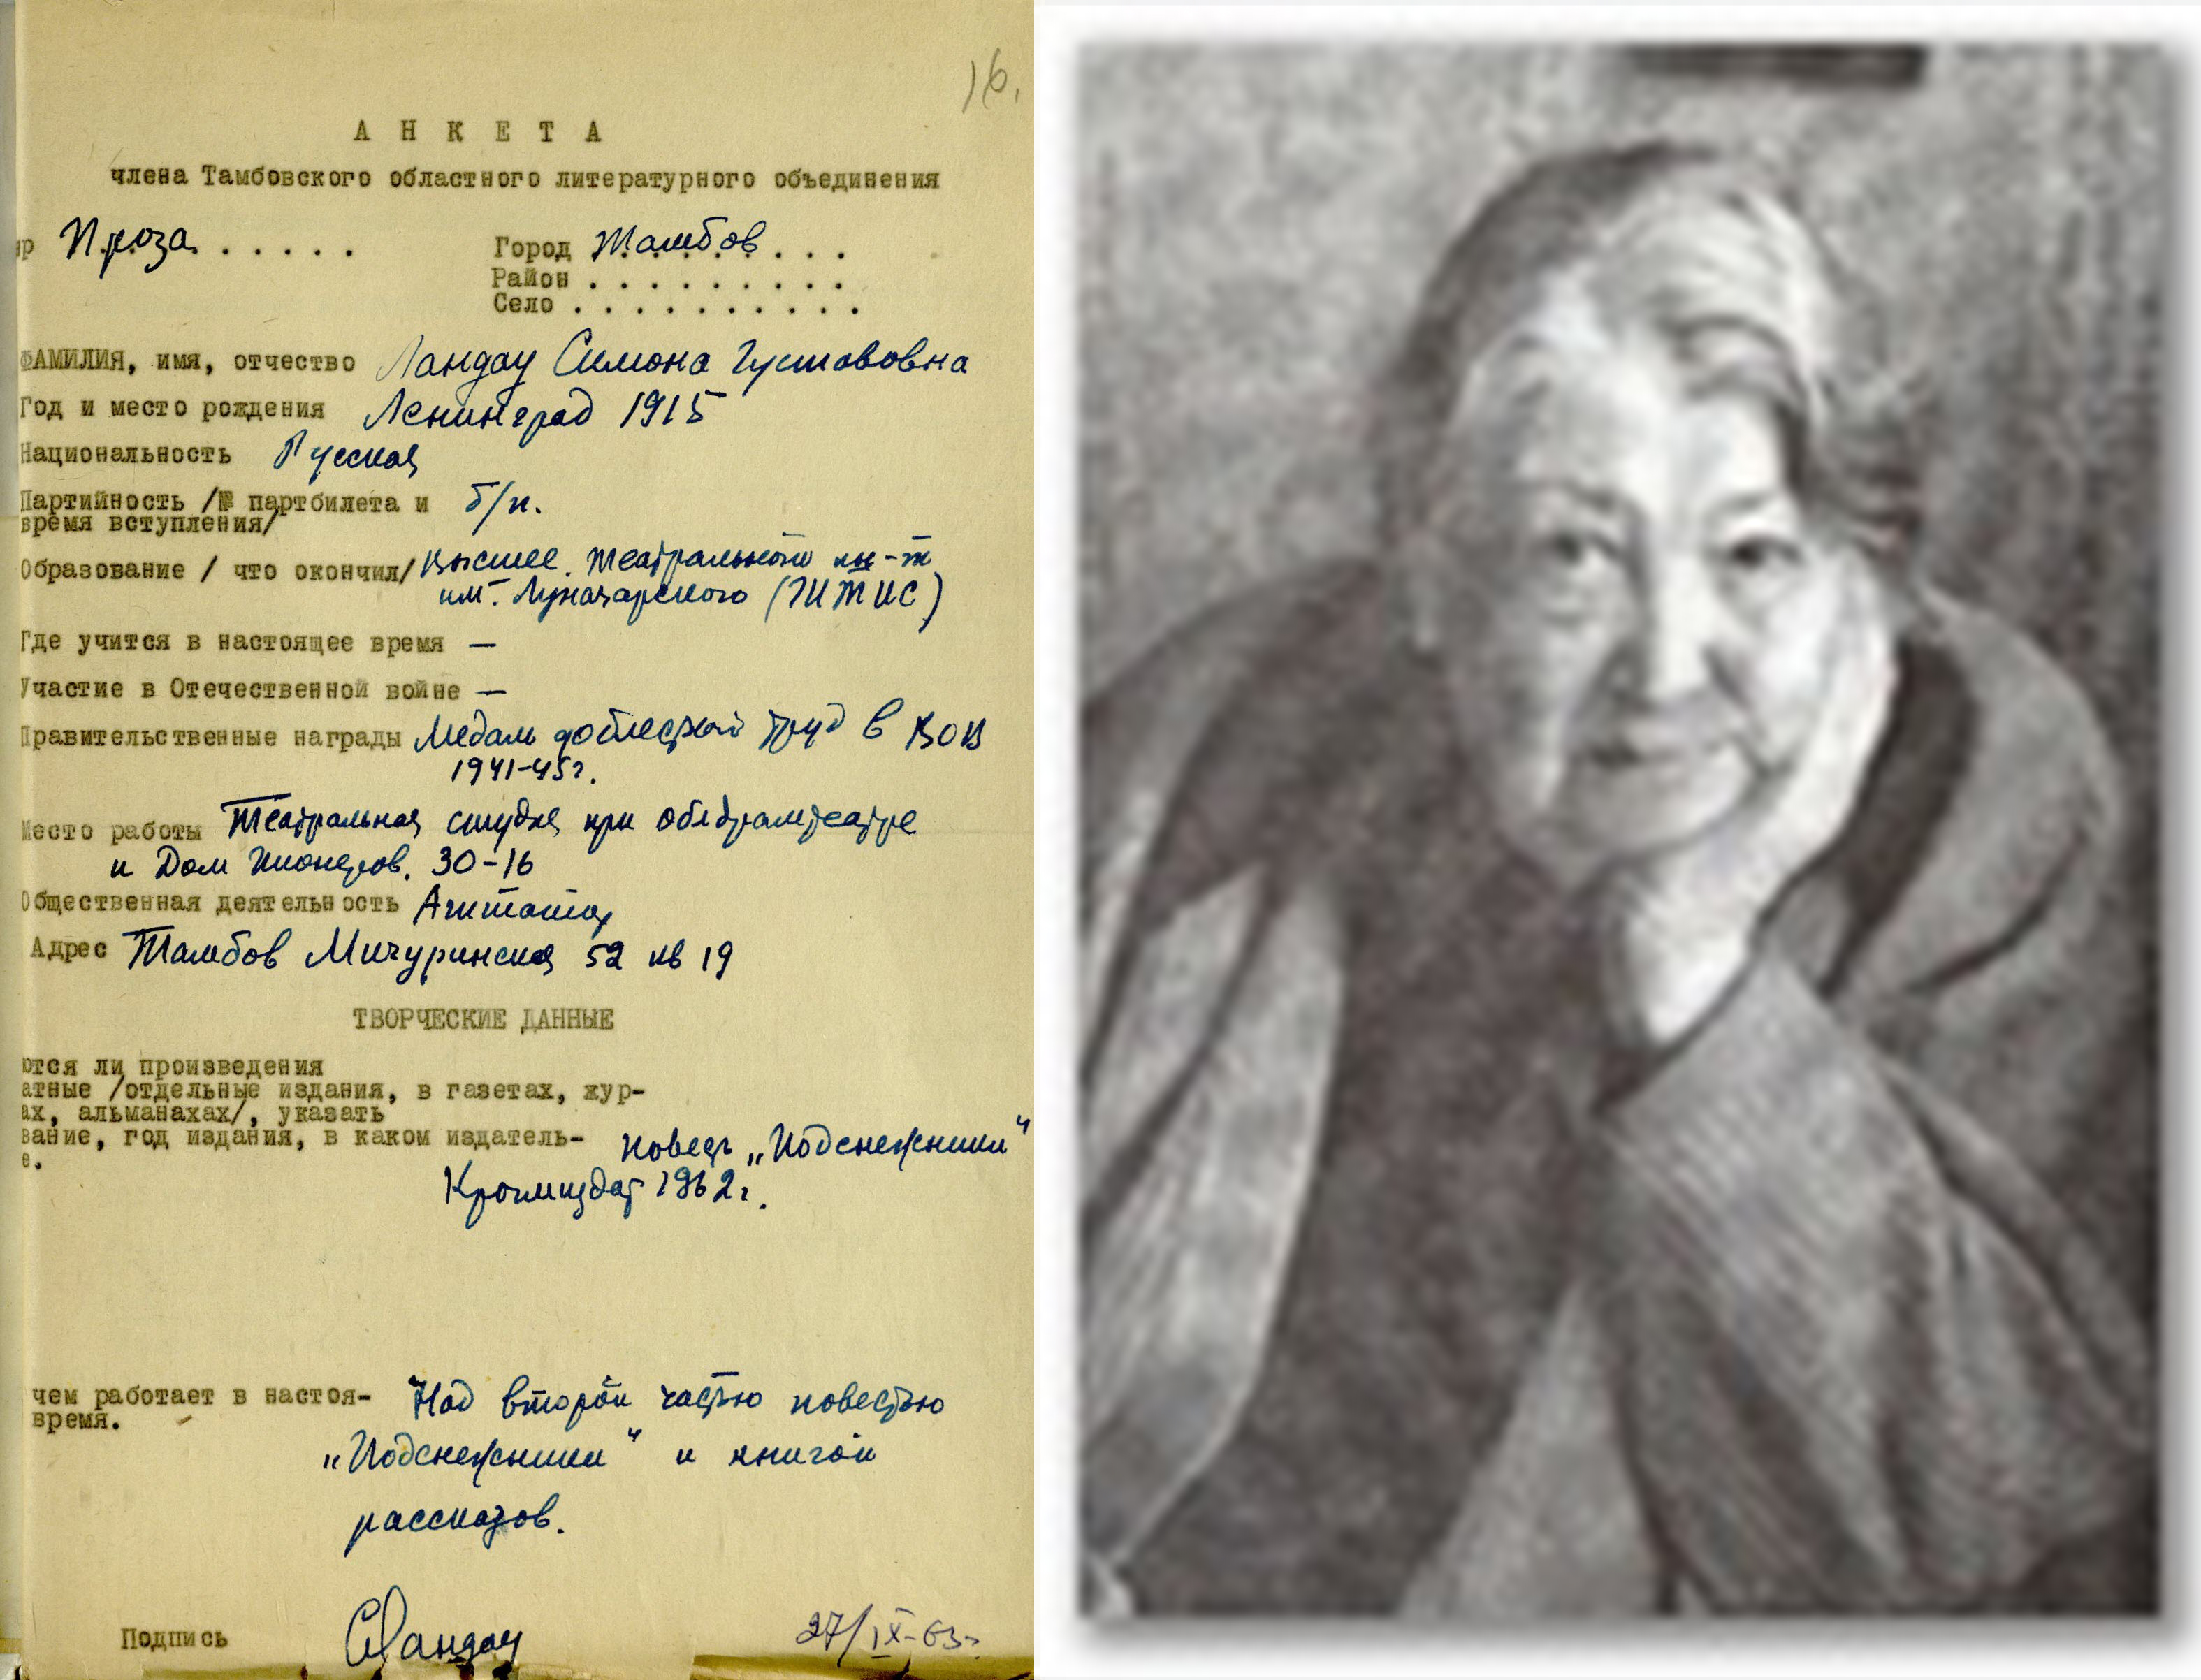 16.
АНКЕТА
члена Тамбовского областного литературного объединения
нр Проза. . . . . . Город Тамбов. . . .
Район . . . . . . . . .
Село . . . . . . . . . .
ФАМИЛИЯ, имя, отчество Ландау Симона Густавовна
Год и место рождения Ленинград 1915
Национальность Русская
Партийность /№ партбилета и б/п.
время вступления/
Образование / что окончил/ высшее. Театральный ин-т
им. Луначарского (ГИТИС)
Где учится в настоящее время —
Участие в Отечественной войне —
Правительственные награды Медаль доблестный труд в ВОВ
1941-45г.
Место работы Театральная студия при облдрамтеатре
и Дом Пионеров. 30-16
Общественная деятельность Агитатор
Адрес Тамбов Мичуринская 52 кв 19
ТВОРЧЕСКИЕ ДАННЫЕ
ются ли произведения
атные /отдельные издания, в газетах, жур-
ах, альманахах/, указать
вание, год издания, в каком издатель-
е. повесть „Подснежники"
1962г.
чем работает в настоя- Над второй частью повестью
время. „Подснежники" и книгой
рассказов.
Подпись СЛандау 27/IX-63г.